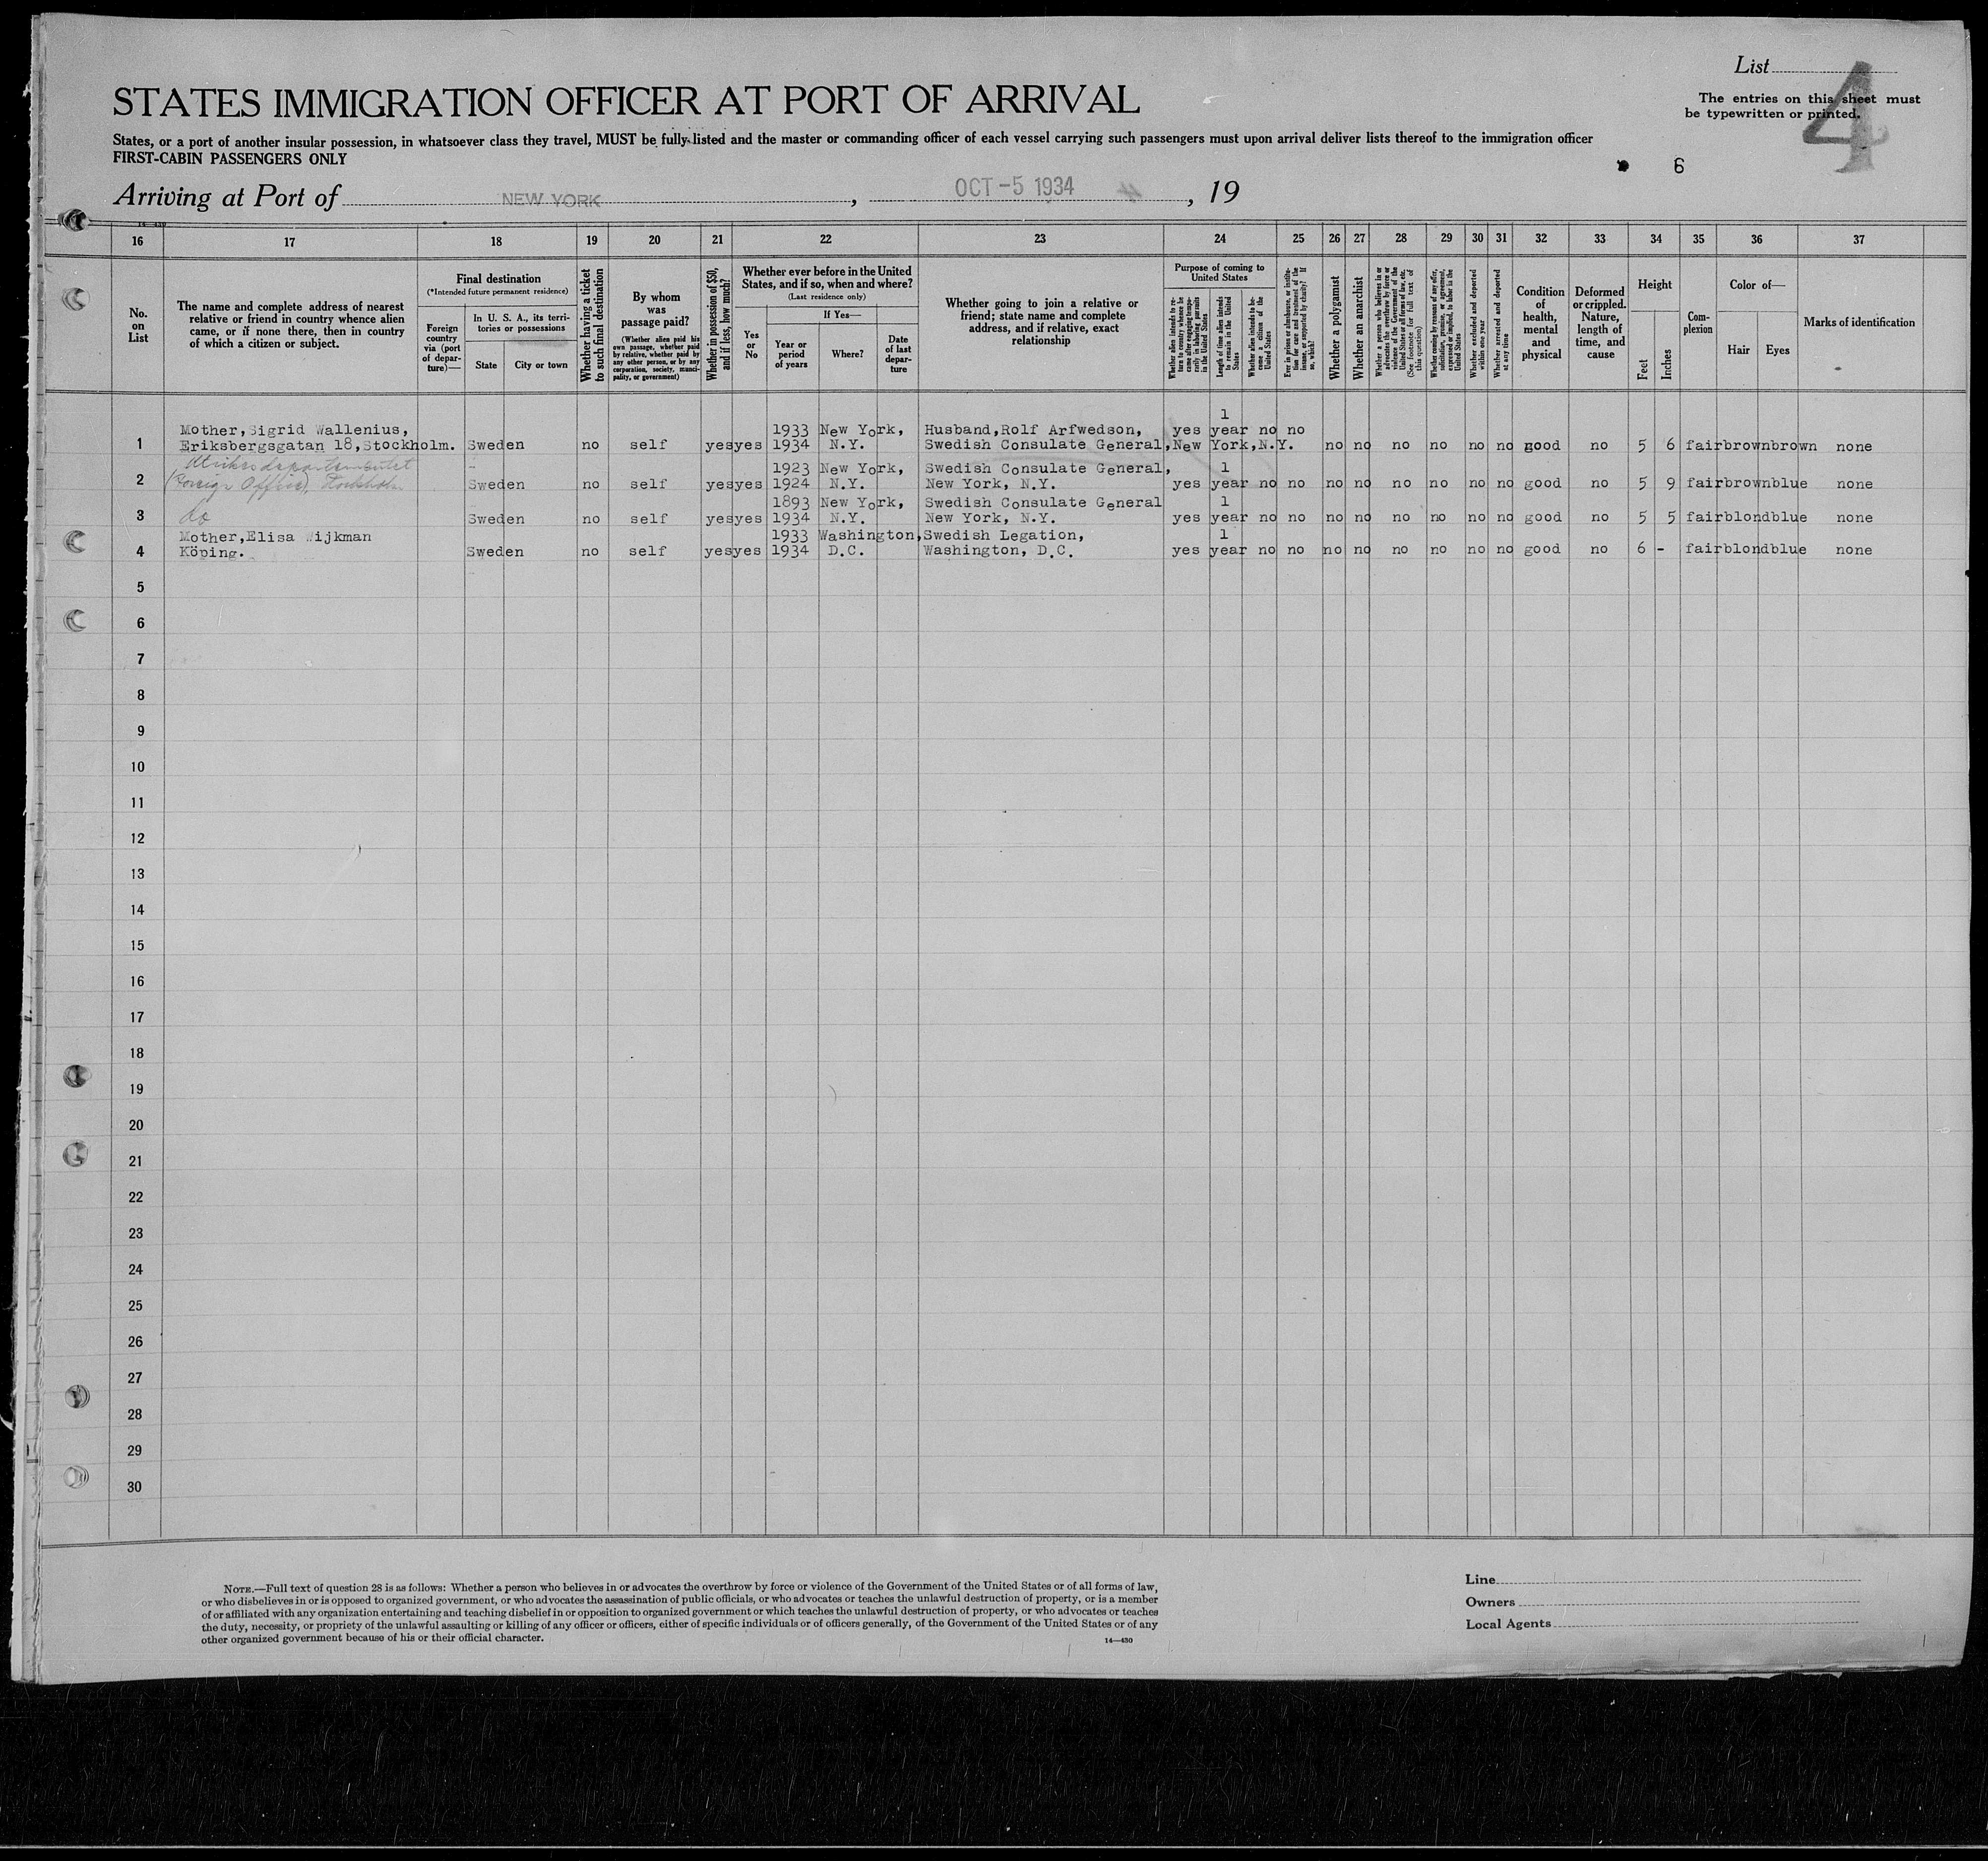 List
The entries on this sheet must
be typewritten or printed.
4
6
STATES IMMIGRATION OFFICER AT PORT OF ARRIVAL
States, or a port of another insular possession, in whatsoever class they travel, MUST be fully listed and the master or commanding officer of each vessel carrying such passengers must upon arrival deliver lists thereof to the immigration officer
FIRST-CABIN PASSENGERS ONLY
Arriving at Port of NEW YORK, OCT -5 1934, 19
16 17 18 19 20 21 22 23 24 25 26 27 28 29 30 31 32 33 34 35 36 37
No.
on
List
The name and complete address of nearest
relative or friend in country whence alien
came, or if none there, then in country
of which a citizen or subject.
Final destination
(*Intended future permanent residence)
Foreign
country
via (port
of depar-
ture)—
In U. S. A., its terri-
tories or possessions
State
City or town
Whether having a ticket
to such final destination
By whom
was
passage paid?
(Whether alien paid his
own passage, whether paid
by relative, whether paid by
any other person, or by any
corporation, society, munici-
pality, or government)
Whether in possession of $50,
and if less, how much?
Whether ever before in the United
States, and if so, when and where?
(Last residence only)
Yes
or
No
If Yes—
Year or
period
of years
Where?
Date
of last
depar-
ture
Whether going to join a relative or
friend; state name and complete
address, and if relative, exact
relationship
Purpose of coming to
United States
Length of time alien intends
to remain in the United
States
Whether alien intends to be-
come a citizen of the
United States
Whether a polygamist
Whether an anarchist
Whether excluded and deported
within one year
Whether arrested and deported
at any time
Condition
of
health,
mental
and
physical
Deformed
or crippled.
Nature,
length of
time, and
cause
Height
Feet
Inches
Com-
plexion
Color of—
Hair
Eyes
Marks of identification
Mother,Sigrid Wallenius, 1933 New York, Husband,Rolf Arfwedson, yes 1 year no no
1 Eriksbergsgatan 18,Stockholm. Sweden no self yes yes 1934 N.Y. Swedish Consulate General,New York,N.Y. no no no no no no good no 5 6 fair brown brown none
Utrikesdepartementet 1923 New York, Swedish Consulate General, 1
2 (Foreign Office), Stockholm Sweden no self yes yes 1924 N.Y. New York, N.Y. yes year no no no no no no no no good no 5 9 fair brown blue none
1893 New York, Swedish Consulate General 1
3 do Sweden no self yes yes 1934 N.Y. New York, N.Y. yes year no no no no no no no no good no 5 5 fair blond blue none
Mother,Elisa Wijkman 1933 Washington, Swedish Legation, 1
4 Köping. Sweden no self yes yes 1934 D.C. Washington, D.C. yes year no no no no no no no no good no 6 - fair blond blue none
5
6
7
8
9
10
11
12
13
14
15
16
17
18
19
20
21
22
23
24
25
26
27
28
29
30
NOTE.—Full text of question 28 is as follows: Whether a person who believes in or advocates the overthrow by force or violence of the Government of the United States or of all forms of law,
or who disbelieves in or is opposed to organized government, or who advocates the assassination of public officials, or who advocates or teaches the unlawful destruction of property, or is a member
of or affiliated with any organization entertaining and teaching disbelief in or opposition to organized government or which teaches the unlawful destruction of property, or who advocates or teaches
the duty, necessity, or propriety of the unlawful assaulting or killing of any officer or officers, either of specific individuals or of officers generally, of the Government of the United States or of any
other organized government because of his or their official character.
14—430
Line
Owners
Local Agents